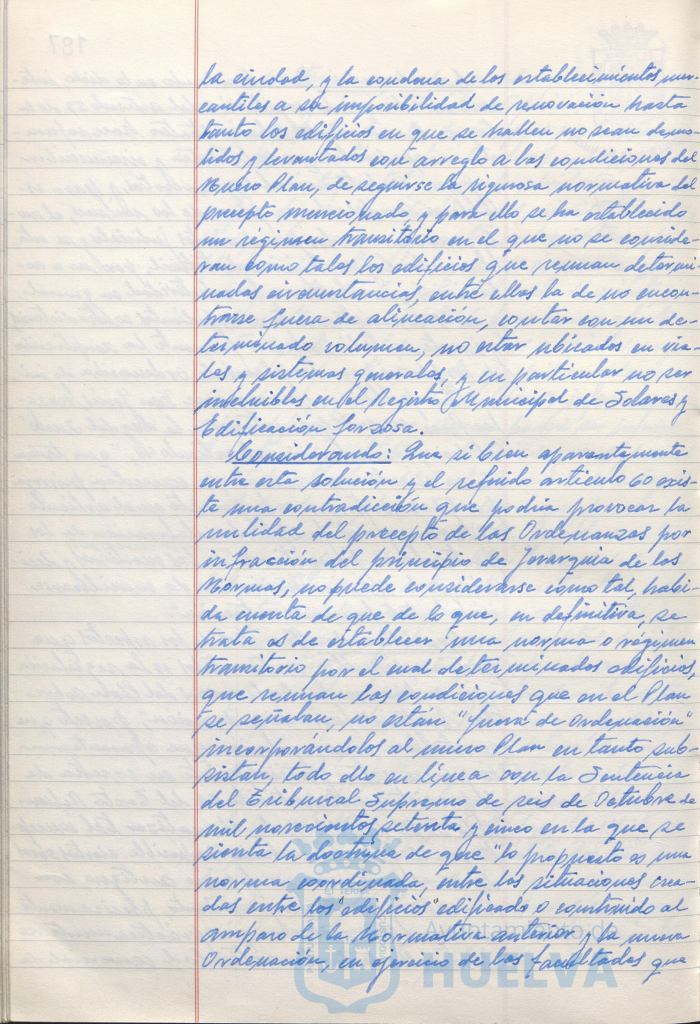 la ciudad, y la condena de los establecimientos mer-
cantiles a su imposibilidad de renovación hasta
tanto los edificios en que se hallen no sean demo-
lidos y levantados con arreglo a las condiciones del
Nuevo Plan, de seguirse la rigurosa normativa del
precepto mencionado, y para ello se ha establecido
un régimen transitorio en el que no se conside-
ran como tales los edificios que reunan determi-
nadas circunstancias, entre ellas la de no encon-
trarse fuera de alineación, contar con un de-
terminado volumen, no estar ubicados en via-
les y sistemas generales, y en particular no ser
incluibles en el Registro Municipal de Solares y
Edificación forzosa.
Considerando: Que si bien aparentemente
entre esta solución y el referido articulo 60 exis-
te una contradicción que podría provocar la
nulidad del precepto de las Ordenanzas por
infracción del principio de Jerarquia de las
Normas, no puede considerarse como tal, habi-
da cuenta de que de lo que, en definitiva, se
trata es de establecer una norma o régimen
transitorio por el cual determinados edificios,
que reunan las condiciones que en el Plan
se señalan, no están "fuera de Ordenación"
incorporándolos al nuevo Plan en tanto sub-
sistan, todo ello en línea con la Sentencia
del Tribunal Supremo de seis de Octubre de
mil novecientos setenta y cinco en la que se
sienta la doctrina de que "lo propuesto es una
norma coordinada, entre las situaciones crea-
das entre los "edificios" edificado o construido al
amparo de la Normativa anterior y la nueva
Ordenación, en ejercicio de las facultades que
Ayuntamiento de
HUELVA
187